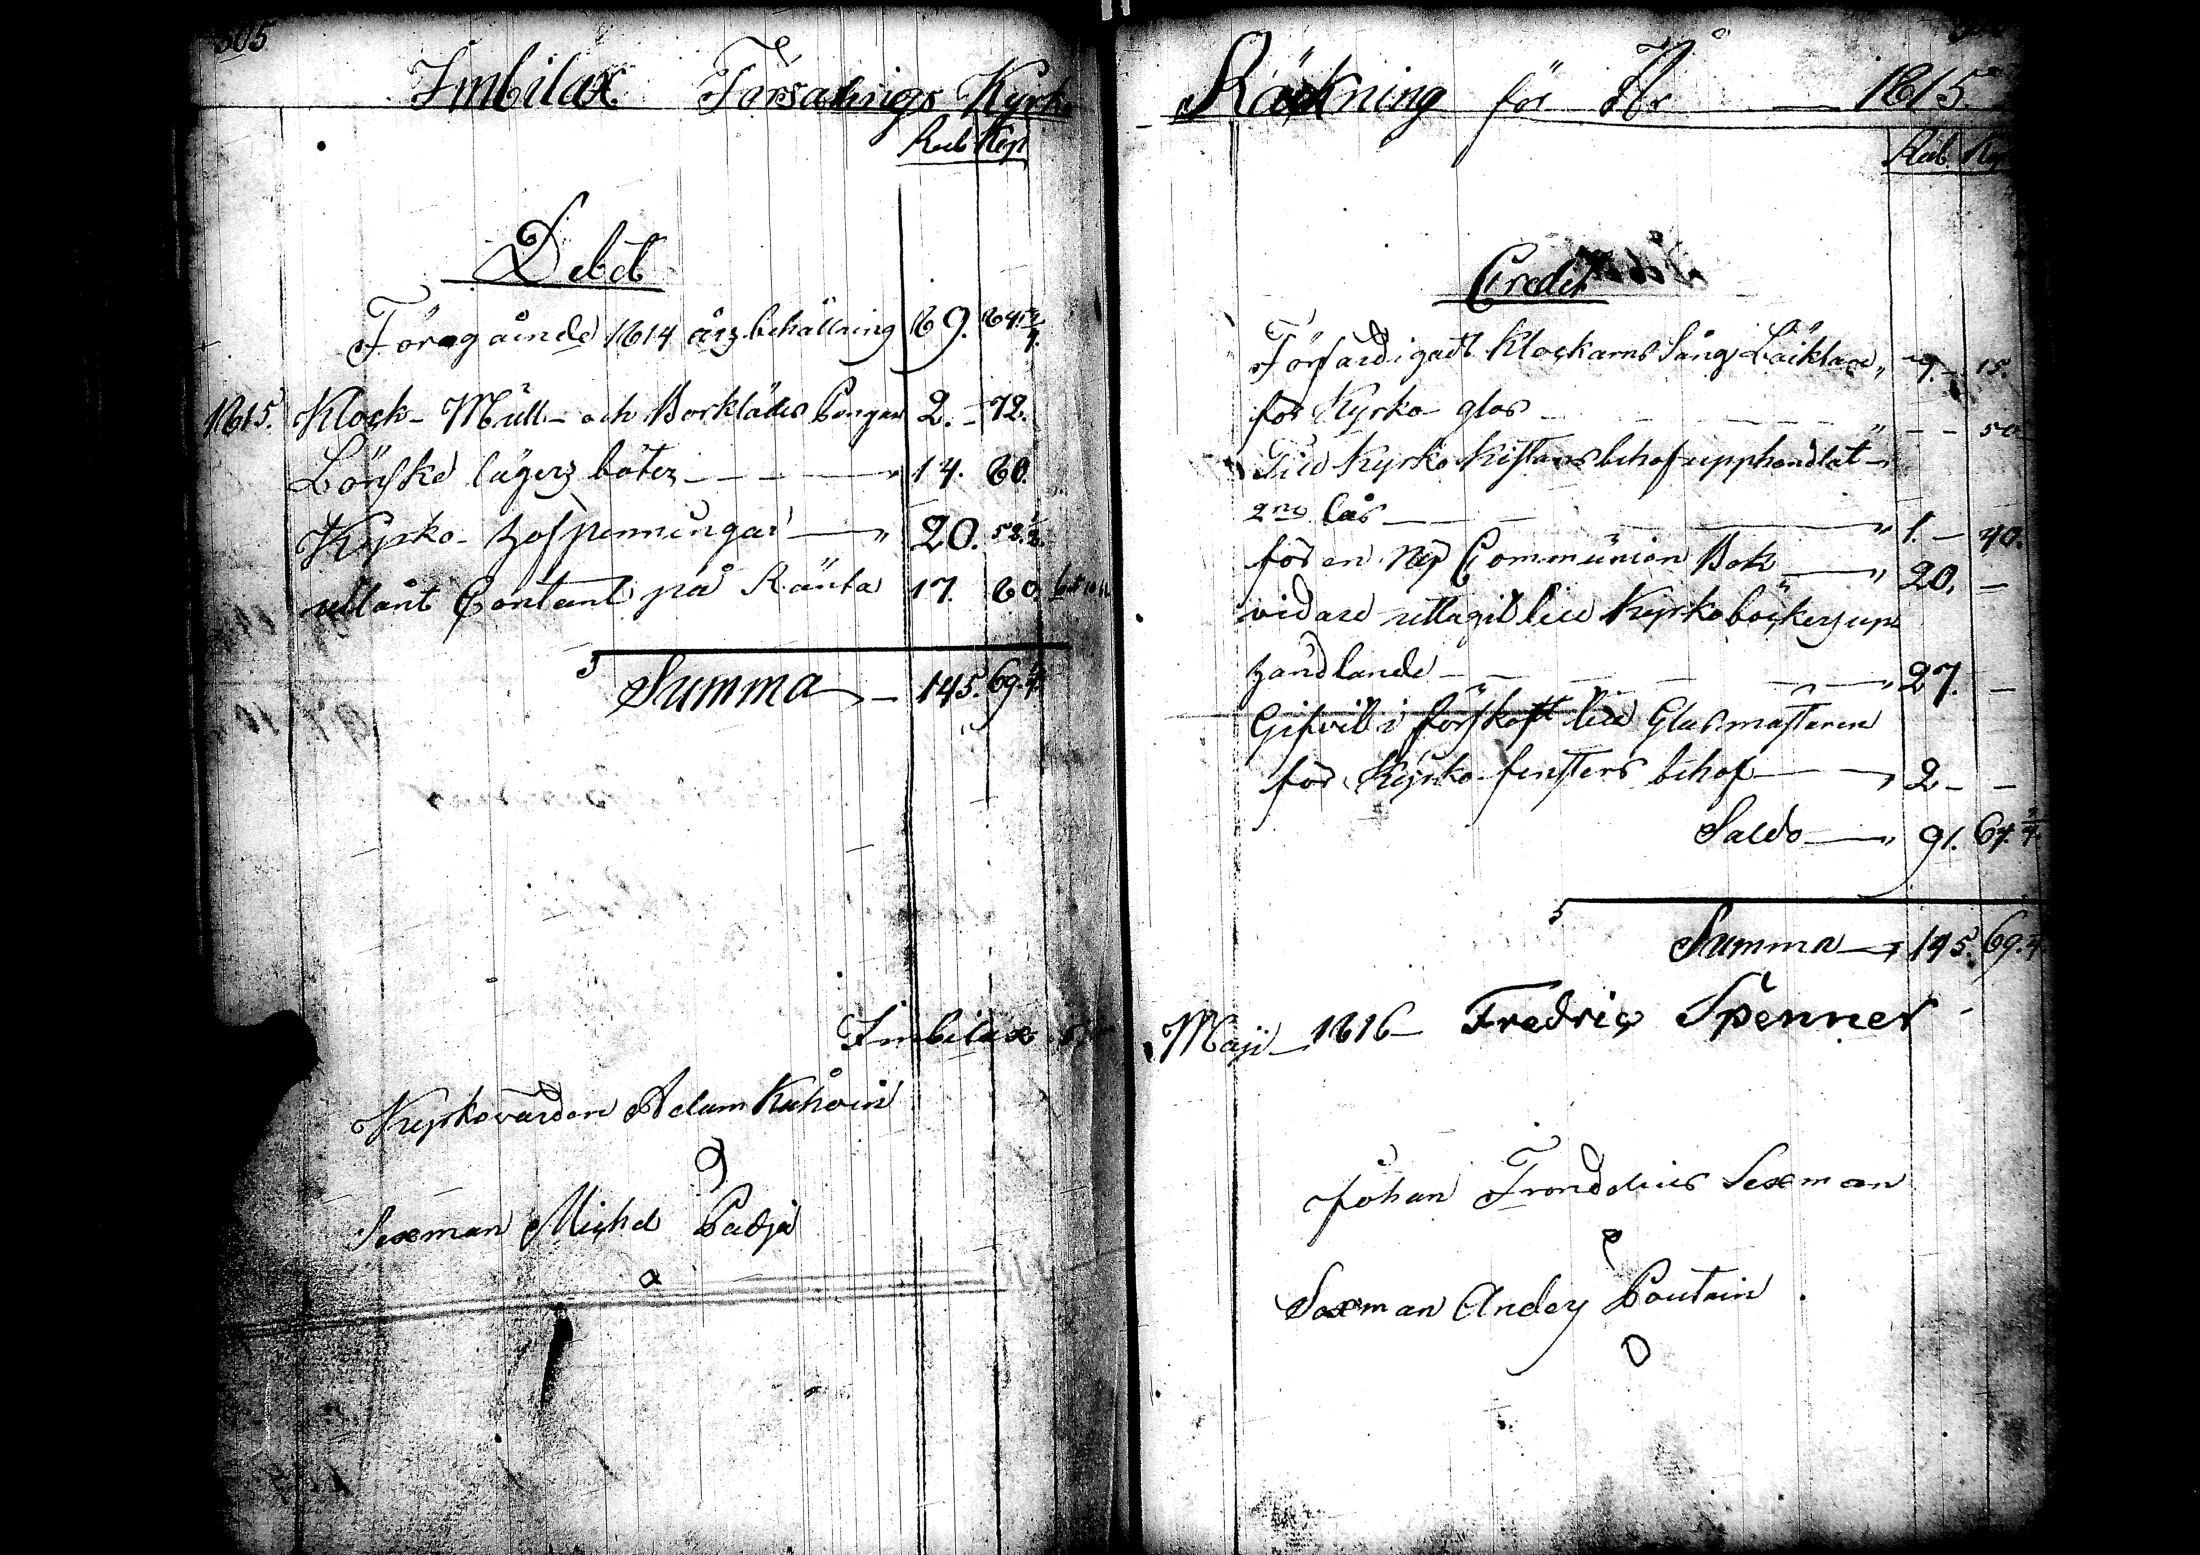 305
Imbilax Församlings Kyrko
Rub Kop
Debet
Föregående 1814 års behållning 89. 84 3/4.
1815. Klock- Mull- och Borklädes Pengar 2. - 72.
Lönske lägers böter - - - - " 14. 80.
Kyrko-hofpenningar — " 20. 52 1/2.
utlånt Contant på Ränta 17. 80.
Summa — 145. 69. 1/4.
Imbilax
Kyrkovärden Adam Kuhvin
Sexman Michel Padja
Räkning för År — 1815.
Rub. Kop
Credit
Förfärdigadt Klockarns Sång Läiktare, 15.
för Kyrko glas - - - - " - - 50
Till Kyrko Kistans behof upphandlat
2ne lås — — — " 1. — 40.
för en Ny Communion Bok — " 20. —
vidare uttagit till Kyrkoböckers upp
handlande - - - - " 27. —
Gifvit i förskott till Glasmästaren
för Kyrko fensters behof — " 2 - —
Saldo — " 91. 64. 3/4
Summa — 145. 69. 1/4
Maji 1816 — Fredric Spenner
Johan Frondelius Sexman
Sexman Anders Poutain